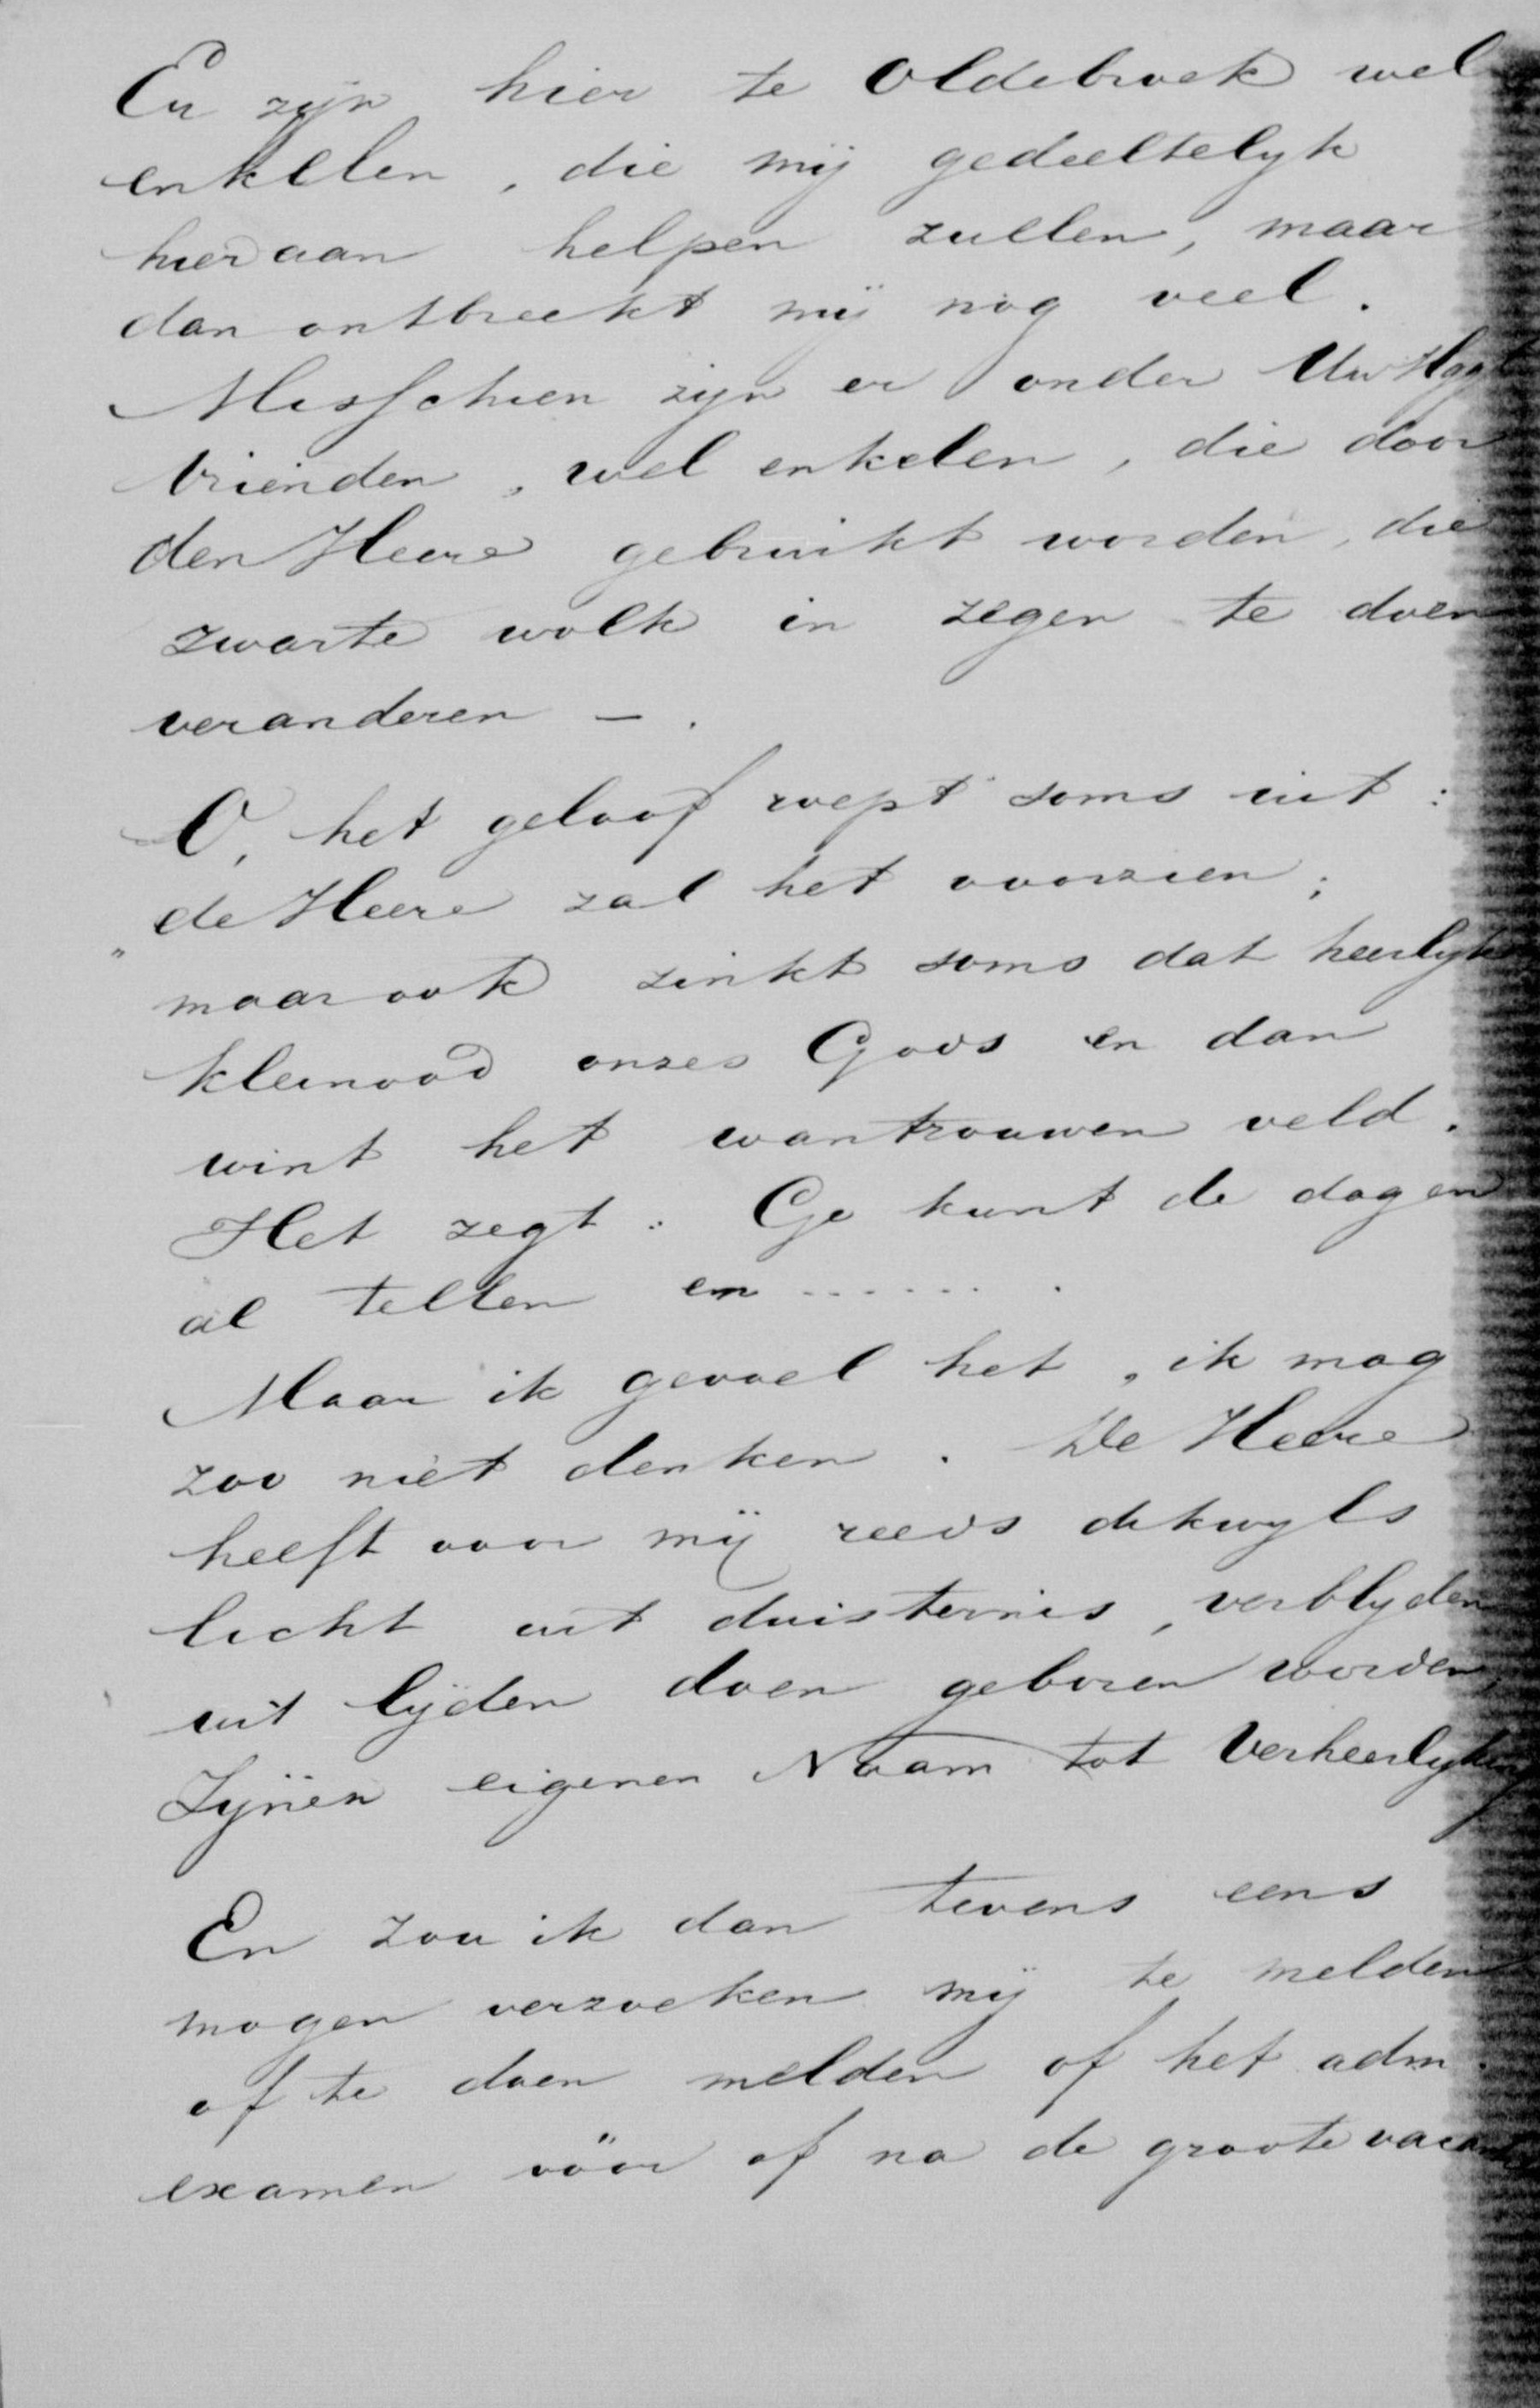 Er zijn hier te Oldebroek wel
enkelen, die mij gedeeltelyk
hieraan helpen zullen, maar
dan ontbreekt mij nog veel.
Misschien zijn er onder Uw
vrienden, wel enkelen, die door
den Heere gebruikt worden, die
zwarte wolk in zegen te doen
veranderen —.
O, het geloof roept soms uit:
de Heere zal het voorzien;
maar ook zinkt soms dat heerlyk
kleinood onzes Gods en dan
wint het wantrouwen veld.
Het zegt: Ge kunt de dagen
al tellen en .......
Maar ik gevoel het, ik mag
zoo niet denken. De Heere
heeft voor mij reeds dikwyls
licht uit duisternis, verblyden
uit lijden doen geboren worden,
Zijnen eigenen Naam tot Verheerlyking
En zou ik dan tevens eens
mogen verzoeken mij te melden
of te doen melden of het adm.
examen vóór of na de groote